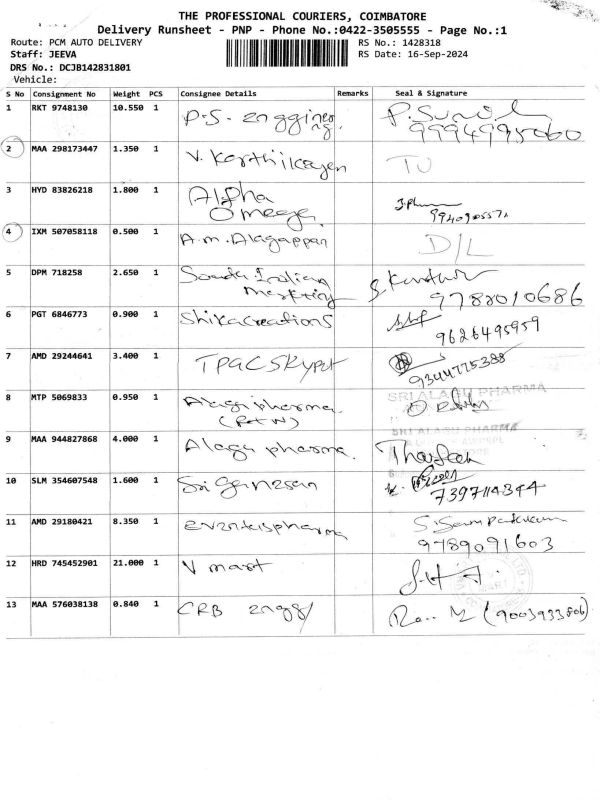 THE PROFESSIONAL COURIERS, COIMBATORE
Delivery Runsheet - PNP - Phone No.:0422-3505555 - Page No.:1
Route: PCM AUTO DELIVERY
RS No.: 1428318
Staff: JEEVA
RS Date: 16-Sep-2024
DRS No.: DCJB142831801
Vehicle:
S No Consignment No Weight PCS Consignee Details Remarks Seal & Signature
1 RKT 9748130 10.550 1 P.S. Enggineering. P. Sunil
9994995060
2 MAA 298173447 1.350 1 V. Karthikayen
3 HYD 83826218 1.800 1 Alpha
Omeega.
4 IXM 507058118 0.500 1 A.m. Alagappan D/L
5 DPM 718258 2.650 1 Indian
Marketing
9788010686
6 PGT 6846773 0.900 1 Shikacreations
9626495959
7 AMD 29244641 3.400 1
9344775388
8 MTP 5069833 0.950 1 Alagi pharma SRI ALAGU PHARMA
9 MAA 944827868 4.000 1 Alagu pharma. SRI ALAGU PHARMA
10 SLM 354607548 1.600 1 Sri Ganesan
7397114344
11 AMD 29180421 8.350 1
9789091603
12 HRD 745452901 21.000 1 V mart
13 MAA 576038138 0.840 1 CRB engg (9003933806)